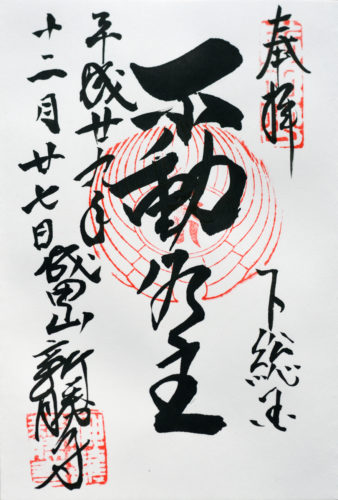 奉拝
下総国
不動明王
平成廿九年
十二月廿七日
成田山新勝寺